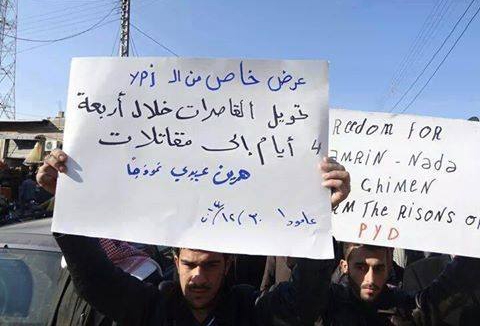 عرض خاص من الـ ypj
تحويل القاصرات خلال أربعة
4 أيام إلى مقاتلات
همرين عيدي نموذجاً
عامودا
REEDOM FOR
AMRIN - Nada
GHIMEN
M THE RISONS O
PYD